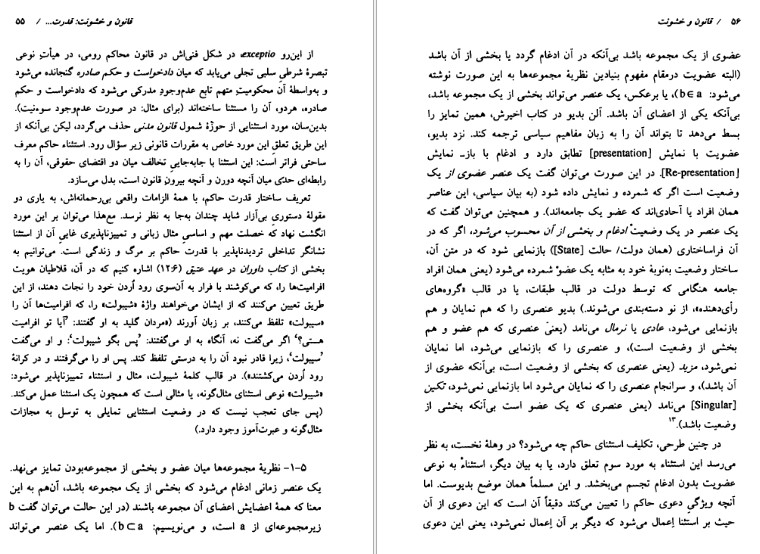 قانون و خشونت: قدرت... / ۵۵
از این‌رو exceptio در شکل فنی‌اش در قانون محاکم رومی، در هیأتِ نوعی
تبصرهٔ شرطیِ سلبی تجلی می‌یابد که میان دادخواست و حکم صادره گنجانده می‌شود
و به‌واسطهٔ آن محکومیتِ متهم تابع عدم‌وجودِ مدرکی می‌شود که دادخواست و حکم
صادره، هردو، آن را مستثنا ساخته‌اند (برای مثال: در صورت عدم‌وجود سوءنیت).
بدین‌سان، مورد استثنایی از حوزهٔ شمول قانون مدنی حذف می‌گردد، لیکن بی‌آنکه از
این طریق تعلقِ این مورد خاص به مقررات قانونی زیر سؤال رود. استثناء حاکم معرف
ساحتی فراتر است: این استثنا با جابه‌جایی تخالف میان دو اقتضای حقوقی، آن را به
رابطه‌ای حدّی میان آنچه درون و آنچه بیرونِ قانون است، بدل می‌سازد.
تعریف ساختار قدرت حاکم، با همهٔ الزامات واقعی بی‌رحمانه‌اش، به یاری دو
مقولهٔ دستوریِ بی‌آزار شاید چندان به‌جا به نظر نرسد. مع‌هذا می‌توان بر این مورد
انگشت نهاد که خصلت مهم و اساسیِ مثال زبانی و تمییزناپذیری غاییِ آن از استثنا
نشانگر تداخلی تردیدناپذیر با قدرت حاکم بر مرگ و زندگی است. می‌توانیم به
بخشی از کتاب داوران در عهد عتیق (۱۲:۶) اشاره کنیم که در آن، قلاطیان هویت
افرامیت‌ها را، که می‌کوشند با فرار به آن‌سوی رود اُردن خود را نجات دهند، از این
طریق تعیین می‌کنند که از ایشان می‌خواهند واژهٔ «شیبولت» را، که افرامیت‌ها آن را
«سیبولت» تلفظ می‌کنند، بر زبان آورند («مردان گلید به او گفتند: ‘آیا تو افرامیت
هستی؟’ اگر می‌گفت نه، آنگاه به او می‌گفتند: ‘پس بگو شیبولت’: و او می‌گفت
‘سیبولت’، زیرا قادر نبود آن را به درستی تلفظ کند. پس او را می‌گرفتند و در کرانهٔ
رود اُردن می‌کشتند»). در قالب کلمهٔ شیبولت، مثال و استثناء تمییزناپذیر می‌شود:
«شیبولت» نوعی استثنای مثال‌گونه، یا مثالی است که همچون یک استثنا عمل می‌کند.
(پس جای تعجب نیست که در وضعیت استثنایی تمایلی به توسل به مجازات
مثال‌گونه و عبرت‌آموز وجود دارد.)
۱-۵- نظریهٔ مجموعه‌ها میان عضو و بخشی از مجموعه‌بودن تمایز می‌نهد.
یک عنصر زمانی ادغام می‌شود که بخشی از یک مجموعه باشد، آن‌هم به این
معنا که همهٔ اعضایش اعضای آن مجموعه باشند (در این حالت می‌توان گفت b
زیرمجموعه‌ای از a است، و می‌نویسیم: b⊂a). اما یک عنصر می‌تواند
۵۶ / قانون و خشونت
عضوی از یک مجموعه باشد بی‌آنکه در آن ادغام گردد یا بخشی از آن باشد
(البته عضویت درمقام مفهوم بنیادین نظریهٔ مجموعه‌ها به این صورت نوشته
می‌شود: b∈a)، یا برعکس، یک عنصر می‌تواند بخشی از یک مجموعه باشد،
بی‌آنکه یکی از اعضای آن باشد. آلن بدیو در کتاب اخیرش، همین تمایز را
بسط می‌دهد تا بتواند آن را به زبان مفاهیم سیاسی ترجمه کند. نزد بدیو،
عضویت با نمایش [presentation] تطابق دارد و ادغام با باز‌ـ نمایش
[Re-presentation]. در این صورت می‌توان گفت یک عنصر عضوی از یک
وضعیت است اگر که شمرده و نمایش داده شود (به بیان سیاسی، این عناصر
همان افراد یا آحادی‌اند که عضو یک جامعه‌اند). و همچنین می‌توان گفت که
یک عنصر در یک وضعیت ادغام و بخشی از آن محسوب می‌شود، اگر که در
آن فراساختاری (همان دولت/ حالت [State]) بازنمایی شود که در متن آن،
ساختار وضعیت به‌نوبهٔ خود به مثابه یک عضو شمرده می‌شود (یعنی همان افراد
جامعه هنگامی که توسط دولت در قالب طبقات، یا در قالب «گروه‌های
رأی‌دهنده»، از نو دسته‌بندی می‌شوند.) بدیو عنصری را که هم نمایان و هم
بازنمایی می‌شود، عادی یا نرمال می‌نامد (یعنی عنصری که هم عضو و هم
بخشی از وضعیت است)، و عنصری را که بازنمایی می‌شود، اما نمایان
نمی‌شود، مزید (یعنی عنصری که بخشی از وضعیت است، بی‌آنکه عضوی از
آن باشد)، و سرانجام عنصری را که نمایان می‌شود اما بازنمایی نمی‌شود، تکین
[Singular] می‌نامد (یعنی عنصری که یک عضو است بی‌آنکه بخشی از
وضعیت باشد).۱۳
در چنین طرحی، تکلیف استثنای حاکم چه می‌شود؟ در وهلهٔ نخست، به نظر
می‌رسد این استثناء به مورد سوم تعلق دارد، یا به بیان دیگر، استثناء به نوعی
عضویت بدون ادغام تجسم می‌بخشد. و این مسلماً همان موضع بدیوست. اما
آنچه ویژگیِ دعوی حاکم را تعیین می‌کند دقیقاً آن است که این دعوی از آن
حیث بر استثنا اِعمال می‌شود که دیگر بر آن اِعمال نمی‌شود، یعنی این دعوی